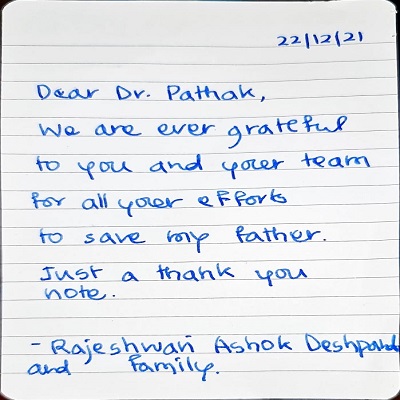 22/12/21
Dear Dr. Pathak,
We are ever grateful
to you and your team
for all your efforts
to save my father.
Just a thank you
note.
- Rajeshwari Ashok Deshpande
and family.